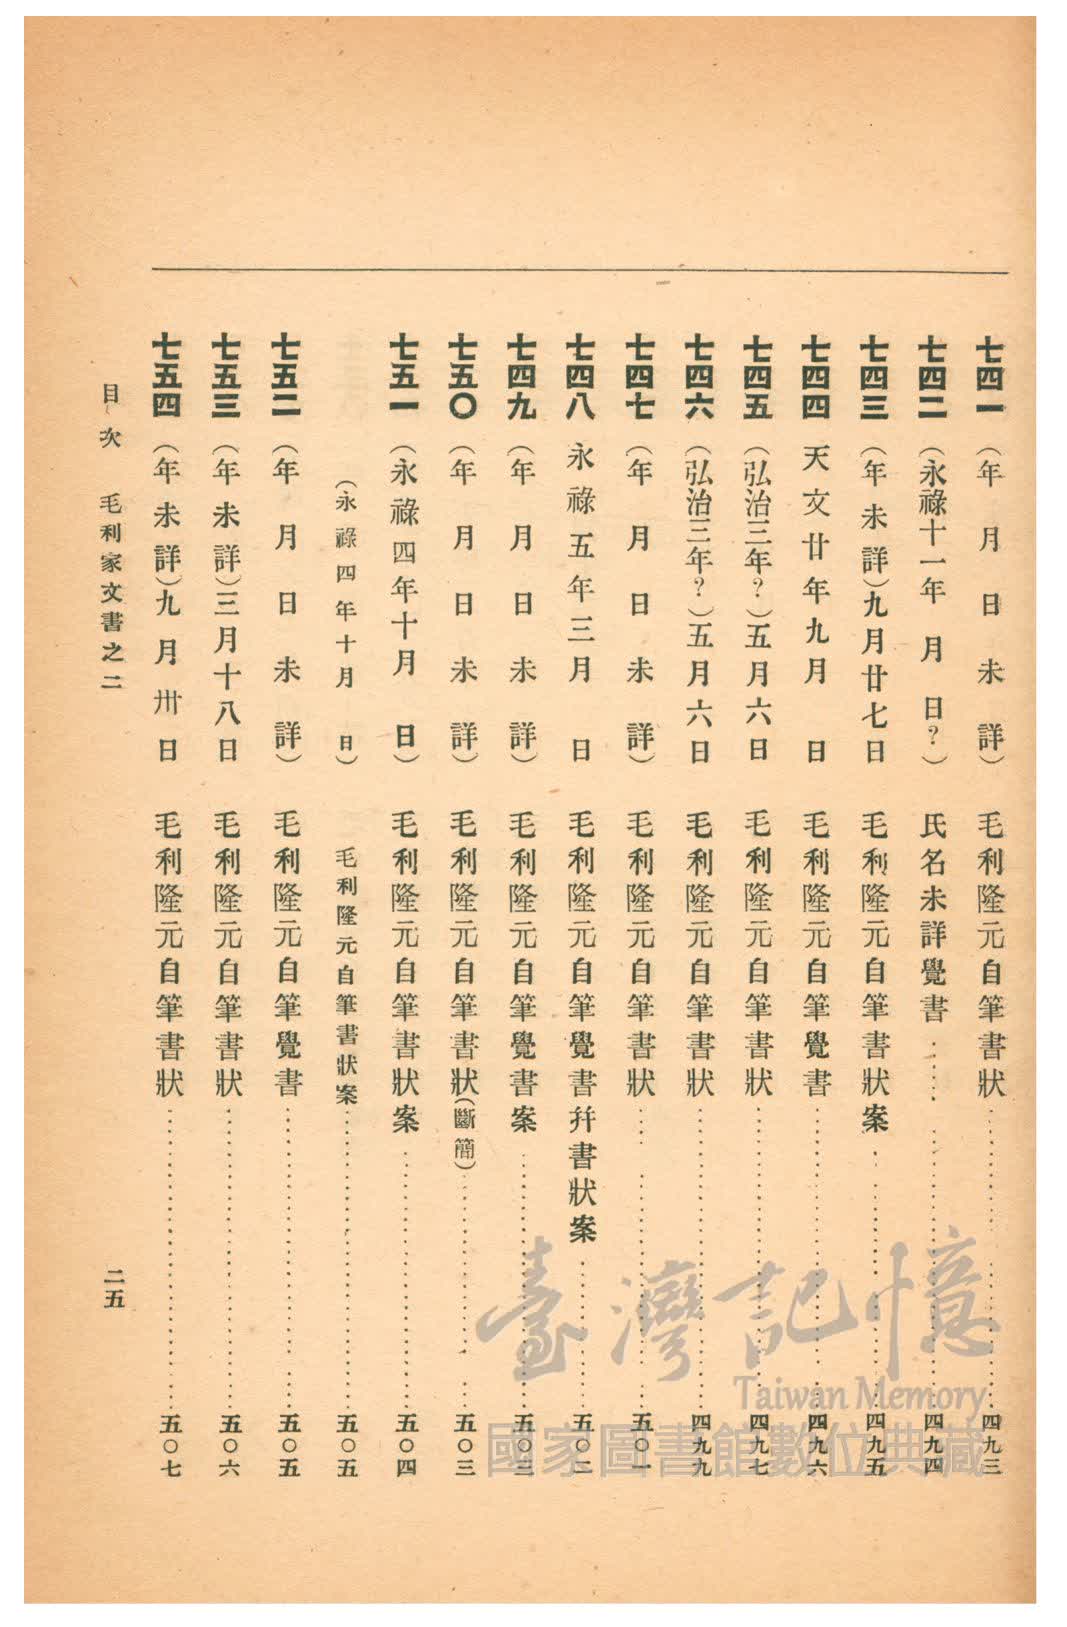 七四一 （年 月 日 未 詳） 毛利隆元自筆書狀……四九三
七四二 （永祿十一年 月 日？） 氏名未詳覺書……四九四
七四三 （年未詳）九月廿七日 毛利隆元自筆書狀案……四九五
七四四 天文廿年九月 日 毛利隆元自筆覺書……四九六
七四五 （弘治三年？）五月六日 毛利隆元自筆書狀……四九七
七四六 （弘治三年？）五月六日 毛利隆元自筆書狀……四九九
七四七 （年 月 日 未 詳） 毛利隆元自筆書狀……五〇一
七四八 永祿五年三月 日 毛利隆元自筆覺書幷書狀案……五〇二
七四九 （年 月 日 未 詳） 毛利隆元自筆覺書案……五〇三
七五〇 （年 月 日 未 詳） 毛利隆元自筆書狀（斷簡）……五〇三
七五一 （永祿四年十月 日） 毛利隆元自筆書狀案……五〇四
（永祿四年十月 日） 毛利隆元自筆書狀案……五〇五
七五二 （年 月 日 未 詳） 毛利隆元自筆覺書……五〇五
七五三 （年未詳）三月十八日 毛利隆元自筆書狀……五〇六
七五四 （年未詳）九月卅日 毛利隆元自筆書狀……五〇七
目次 毛利家文書之二 二五
臺灣記憶
Taiwan Memory
國家圖書館數位典藏